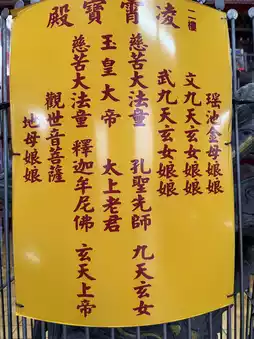 二樓
凌霄寶殿
瑶池金母娘娘
文九天玄女娘娘
武九天玄女娘娘
慈苦大法童 孔聖先師 九天玄女
玉皇大帝 太上老君
慈苦大法童 釋迦牟尼佛 玄天上帝
觀世音菩薩
地母娘娘